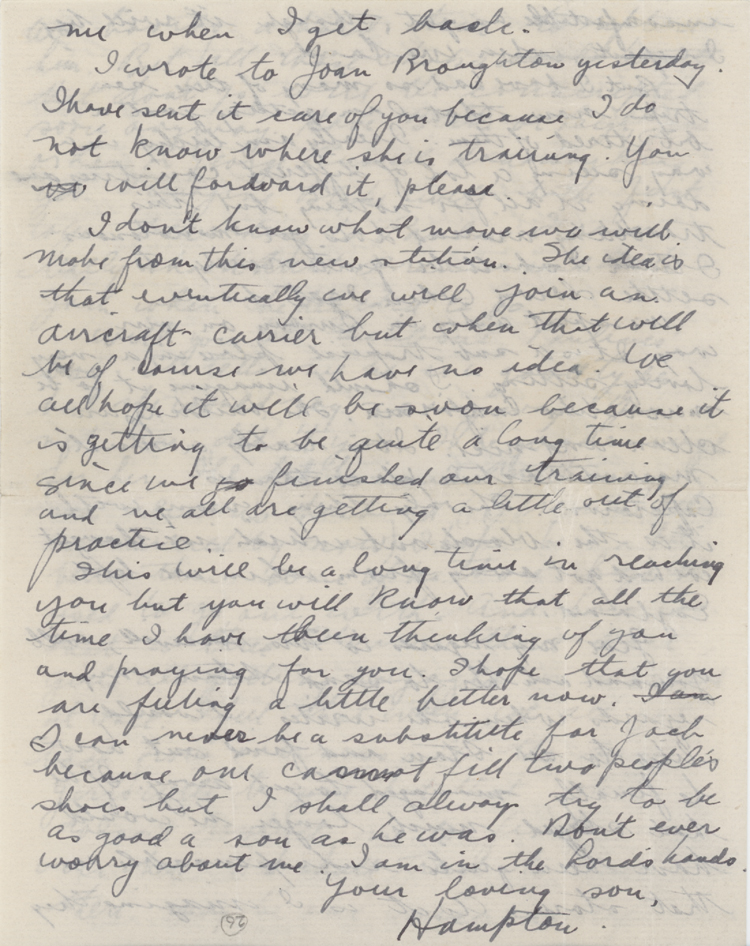 me when I get back.
I wrote to Joan Broughton yesterday.
I have sent it care of you because I do
not know where she is training. You
will fordward it, please.
I don't know what move we will
make from this new station. The idea is
that eventically we will join an
aircraft carrier but when that will
be of course we have no idea. We
all hope it will be soon because it
is getting to be quite a long time
since we so finished our training
and we all are getting a little out of
practice.
This will be a long time in reaching
you but you will know that all the
time I have been thinking of you
and praying for you. I hope that you
are feeling a little better now. I am
I can never be a substitute for Jack
because one cannot fill two people's
shoes but I shall always try to be
as good a son as he was. Don't ever
worry about me. I am in the Lord's hands.
Your loving son,
Hampton.
26